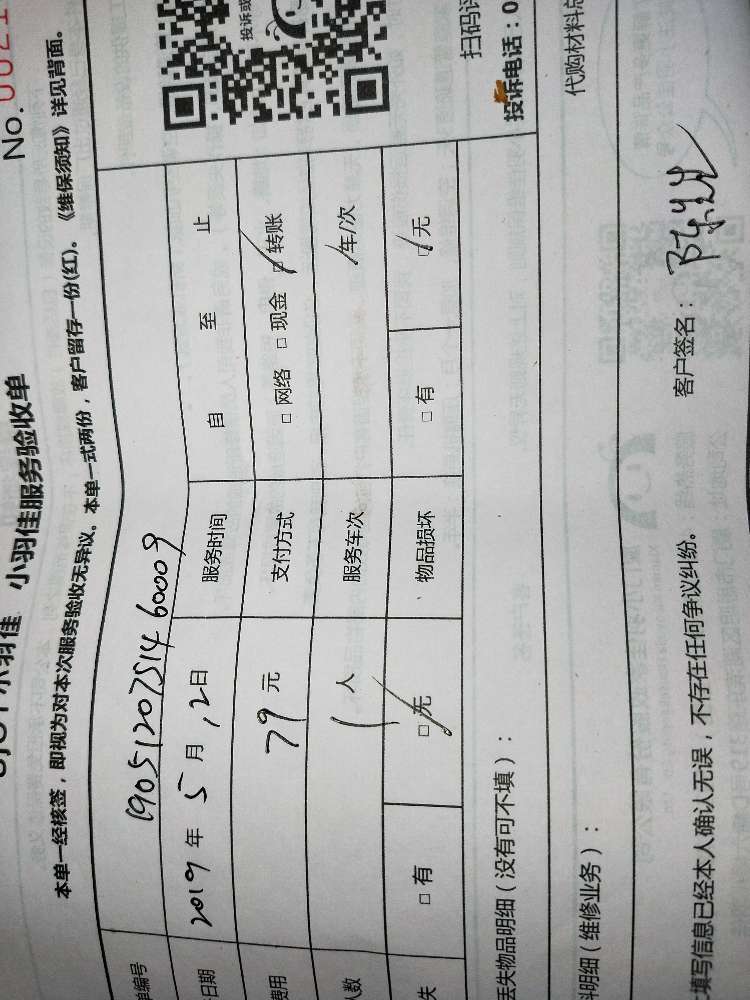 No.0021
小羽佳 小羽佳服务验收单
本单一经核签，即视为对本次服务验收无异议。本单一式两份，客户留存一份(红)。《维保须知》详见背面。
单编号 1905120751460009
日期 2019年5月12日 服务时间 自 至 止
费用 79元 支付方式 □网络 □现金 □转账
人数 1人 服务车次 年/次
失 □有 □无 物品损坏 □有 □无
丢失物品明细（没有可不填）：
料明细（维修业务）：
填写信息已经本人确认无误，不存在任何争议纠纷。 客户签名：
投诉或
扫码评
投诉电话：0
代购材料总